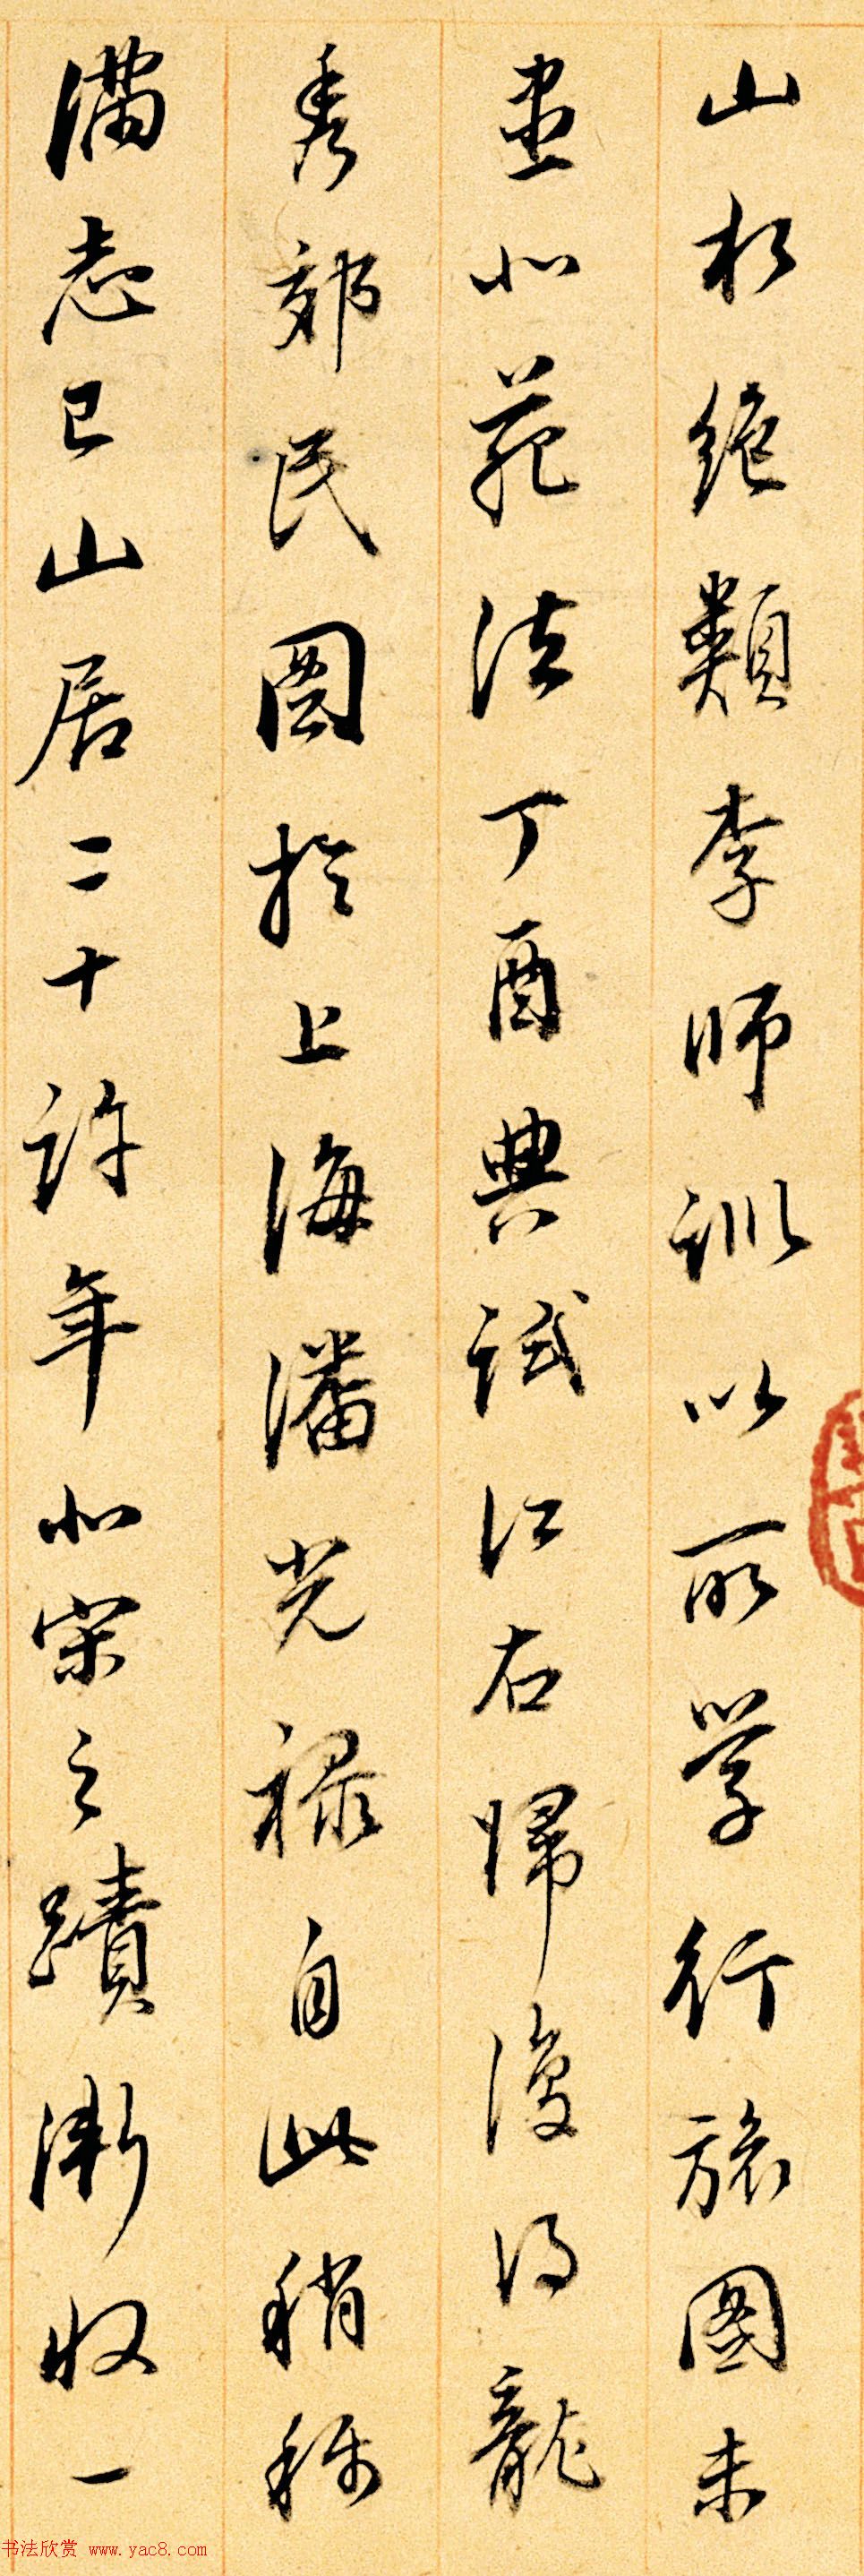 山水絕類李師訓以所學行旅圖未
盡北苑法丁酉典試江右歸復得龍
秀郊民圖於上海潘光祿自此稍稱
滿志已山居二十許年北宋之蹟漸收一
书法欣赏 www.yac8.com